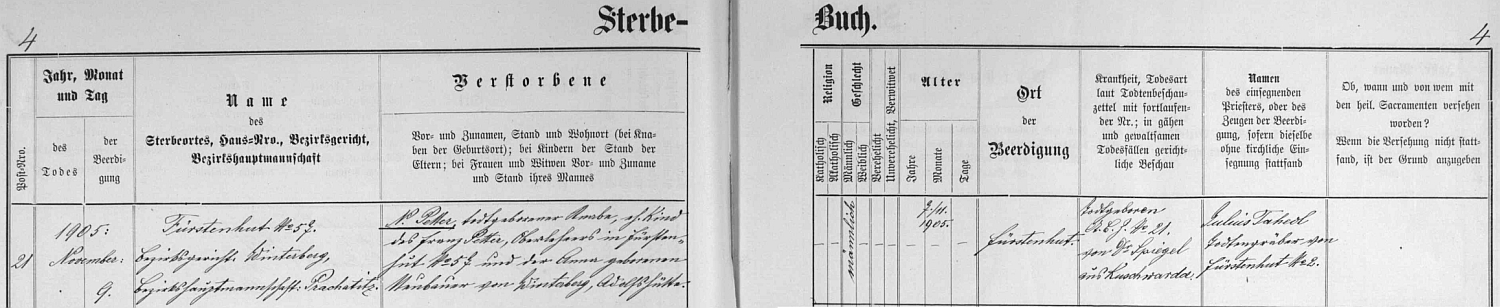 4
Sterbe-
Buch.
4
Post-Nro.
Jahr, Monat
und Tag
des
Todes
der
Beerdi-
gung
Name
des
Sterbeortes, Haus-Nro., Bezirksgericht,
Bezirkshauptmannschaft
Verstorbene
Vor- und Zunamen, Stand und Wohnort (bei Kna-
ben der Geburtsort); bei Kindern der Stand der
Eltern; bei Frauen und Witwen Vor- und Zuname
und Stand ihres Mannes
Religion
Katholisch
Akatholisch
Geschlecht
Männlich
Weiblich
Verehelicht
Unverehelicht, Verwitwet
Alter
Jahre
Monate
Tage
Ort
der
Beerdigung
Krankheit, Todesart
laut Todtenbeschau-
zettel mit fortlaufen-
der Nr.; in gähen
und gewaltsamen
Todesfällen gericht-
liche Beschau
Namen
des einsegnenden
Priesters, oder des
Zeugen der Beerdi-
gung, sofern dieselbe
ohne kirchliche Ein-
segnung stattfand
Ob, wann und von wem mit
den heil. Sacramenten versehen
worden?
Wenn die Versehung nicht statt-
fand, ist der Grund anzugeben
21
1905:
November:
9.
Fürstenhut No 57.
Bezirksgericht: Winterberg,
Bezirkshauptmannschaft: Prachatitz.
N. Petter, todtgeborener Knabe, eh. Kind
des Franz Petter, Oberlehrers in Fürsten-
hut No 57 und der Anna geborenen
Neubauer von Winterberg, Adolfshütte.
männlich
7/11.
1905.
Fürstenhut.
todtgeboren
No 21.
von Dr Spiegel
aus Kuschwarda.
Julius Tahedl
Todtengräber von
Fürstenhut No 2.